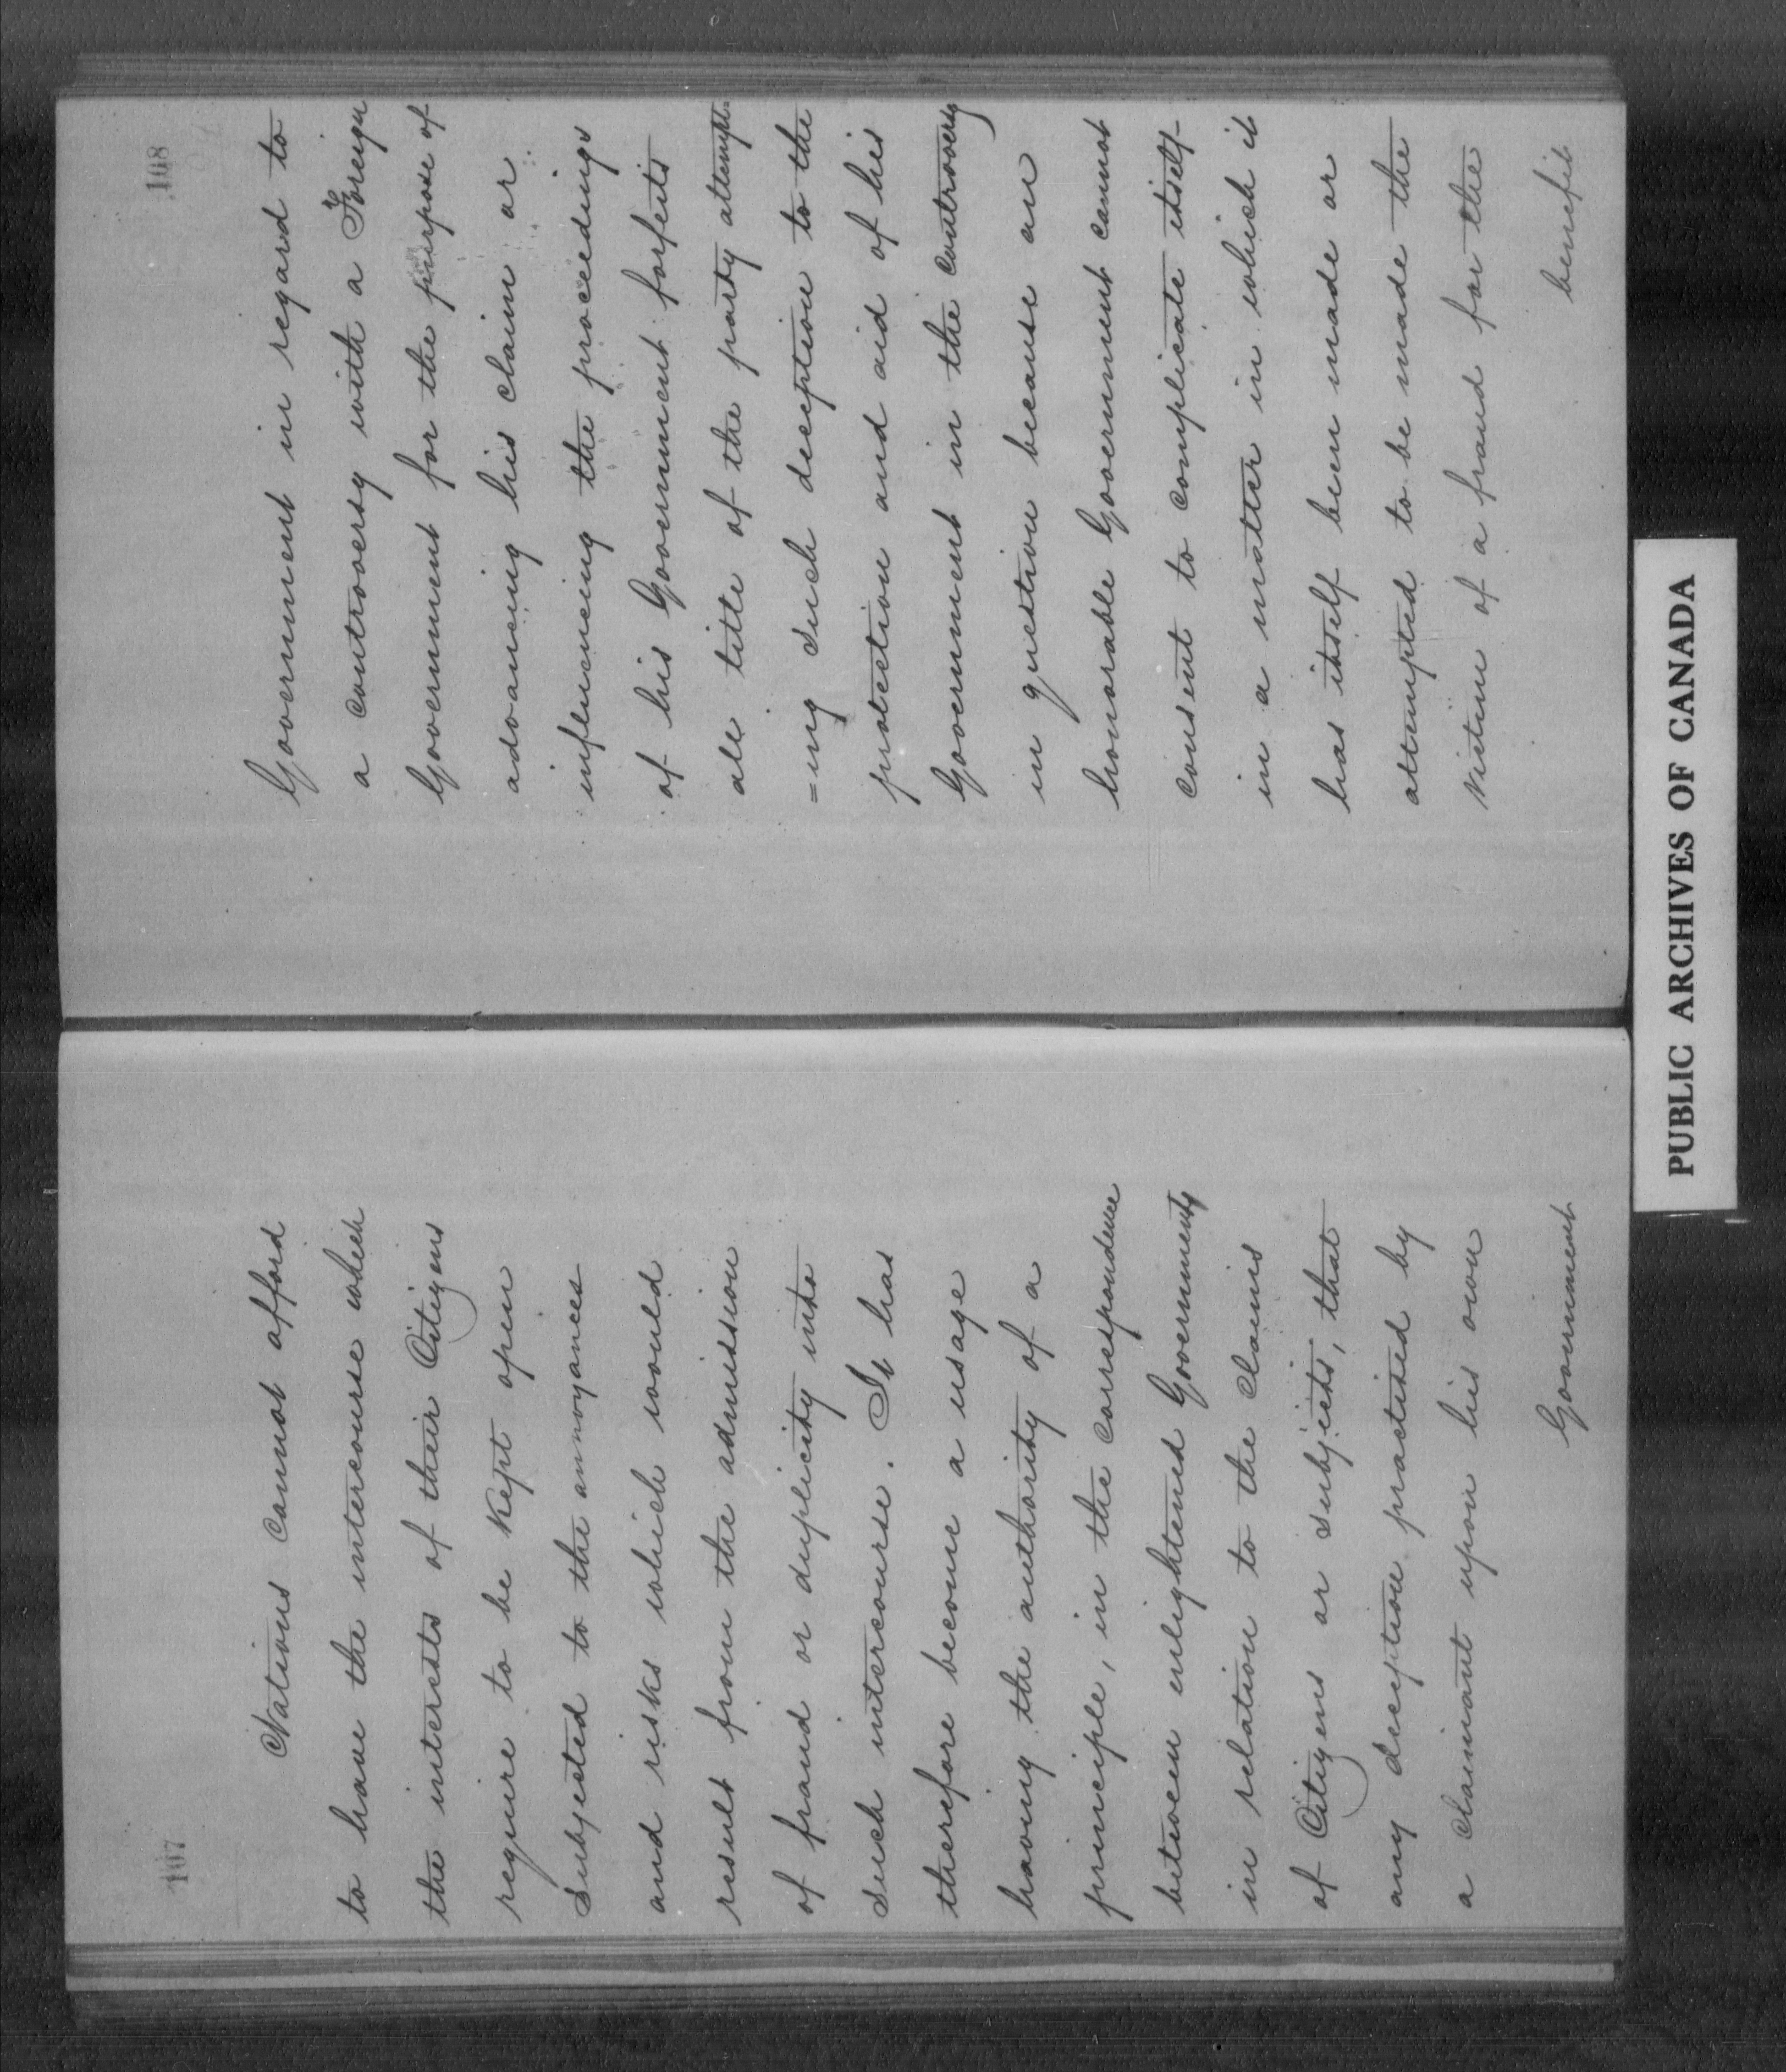 107
Nations cannot afford
to have the intercourse which
the interests of their Citizens
require to be kept open
subjected to the annoyances
and risks which would
result from the admission
of fraud or duplicity into
such intercourse. It has
therefore become a usage
having the authority of a
principle, in the correspondence
between enlightened Governments
in relation to the claims
of Citizens or subjects, that
any deception practised by
a claimant upon his own
Government
108
Government in regard to
a controversy with a Foreign
Government for the purpose of
advancing his claim or
influencing the proceedings
of his Government forfeits
all title of the party attempt
=ing such deception to the
protection and aid of his
Government in the controversy
in question because an
honorable Government cannot
consent to complicate itself
in a matter in which it
has itself been made or
attempted to be made the
victim of a fraud for the
benefit
PUBLIC ARCHIVES OF CANADA